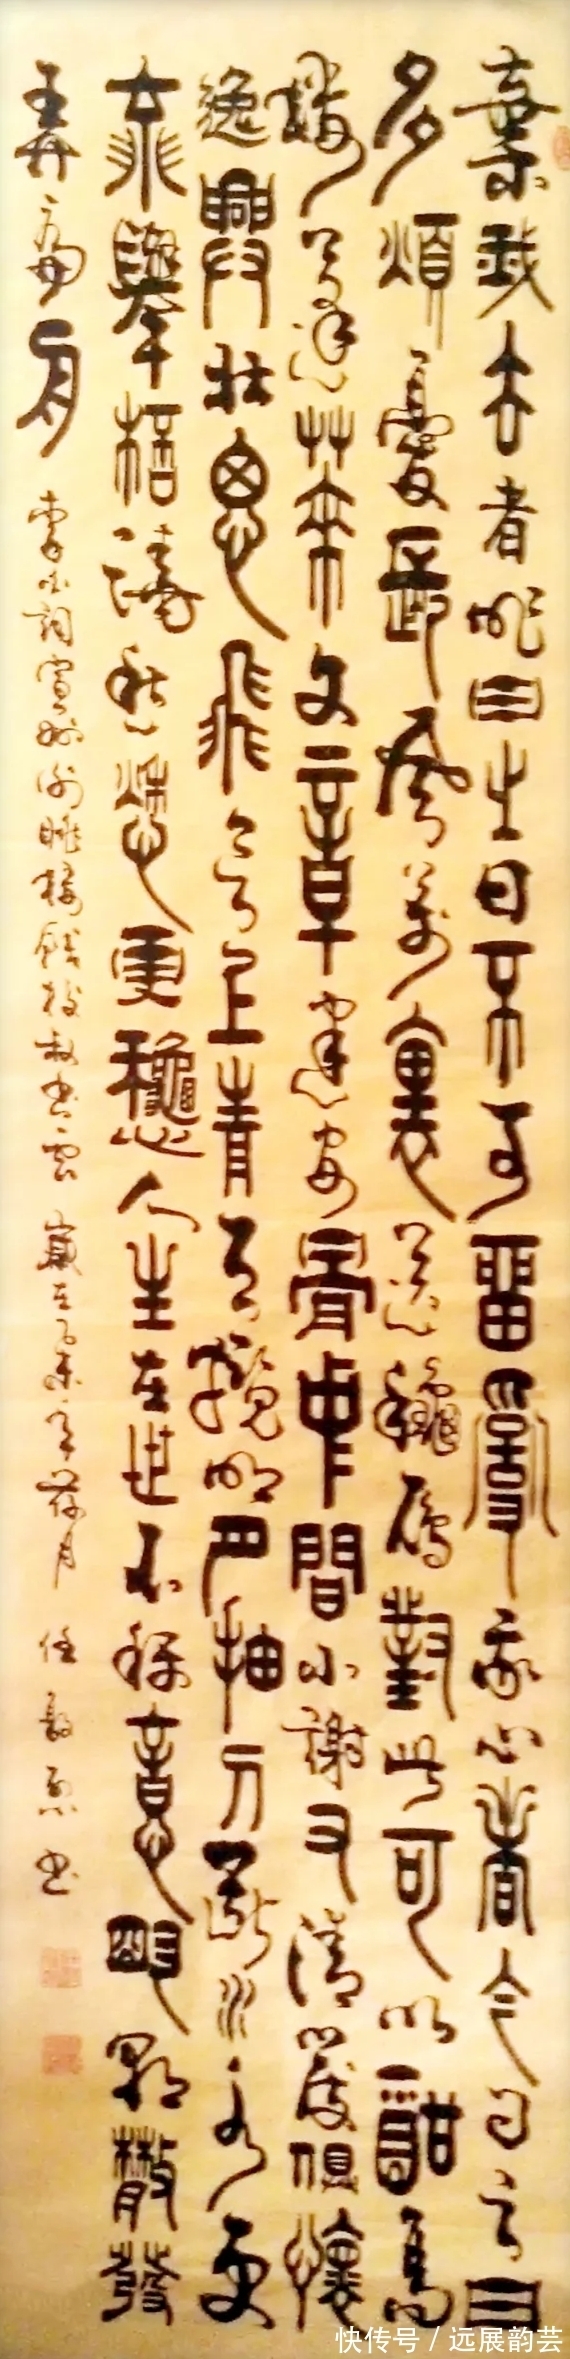 棄我去者昨日之日不可留亂我心者今日之日
多煩憂長風萬裏送秋雁對此可以酣高
樓蓬萊文章建安骨中間小謝又清發俱懷
逸興壯思飛欲上青天攬明月抽刀斷水水更
流舉杯澆愁愁更愁人生在世不稱意明朝散發
弄扁舟 李白詞宣州謝朓樓餞校叔書雲 歲在乙未年荷月 任書
快传号/远展韵芸